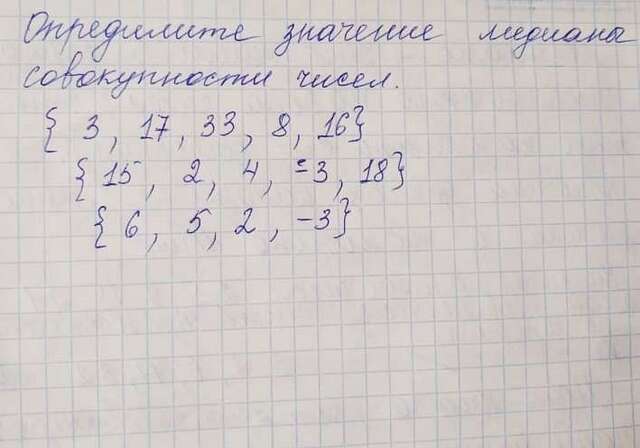 Определите значение медианы
совокупности чисел.
{ 3, 17, 33, 8, 16}
{ 15, 2, 4, -3, 18}
{ 6, 5, 2, -3}